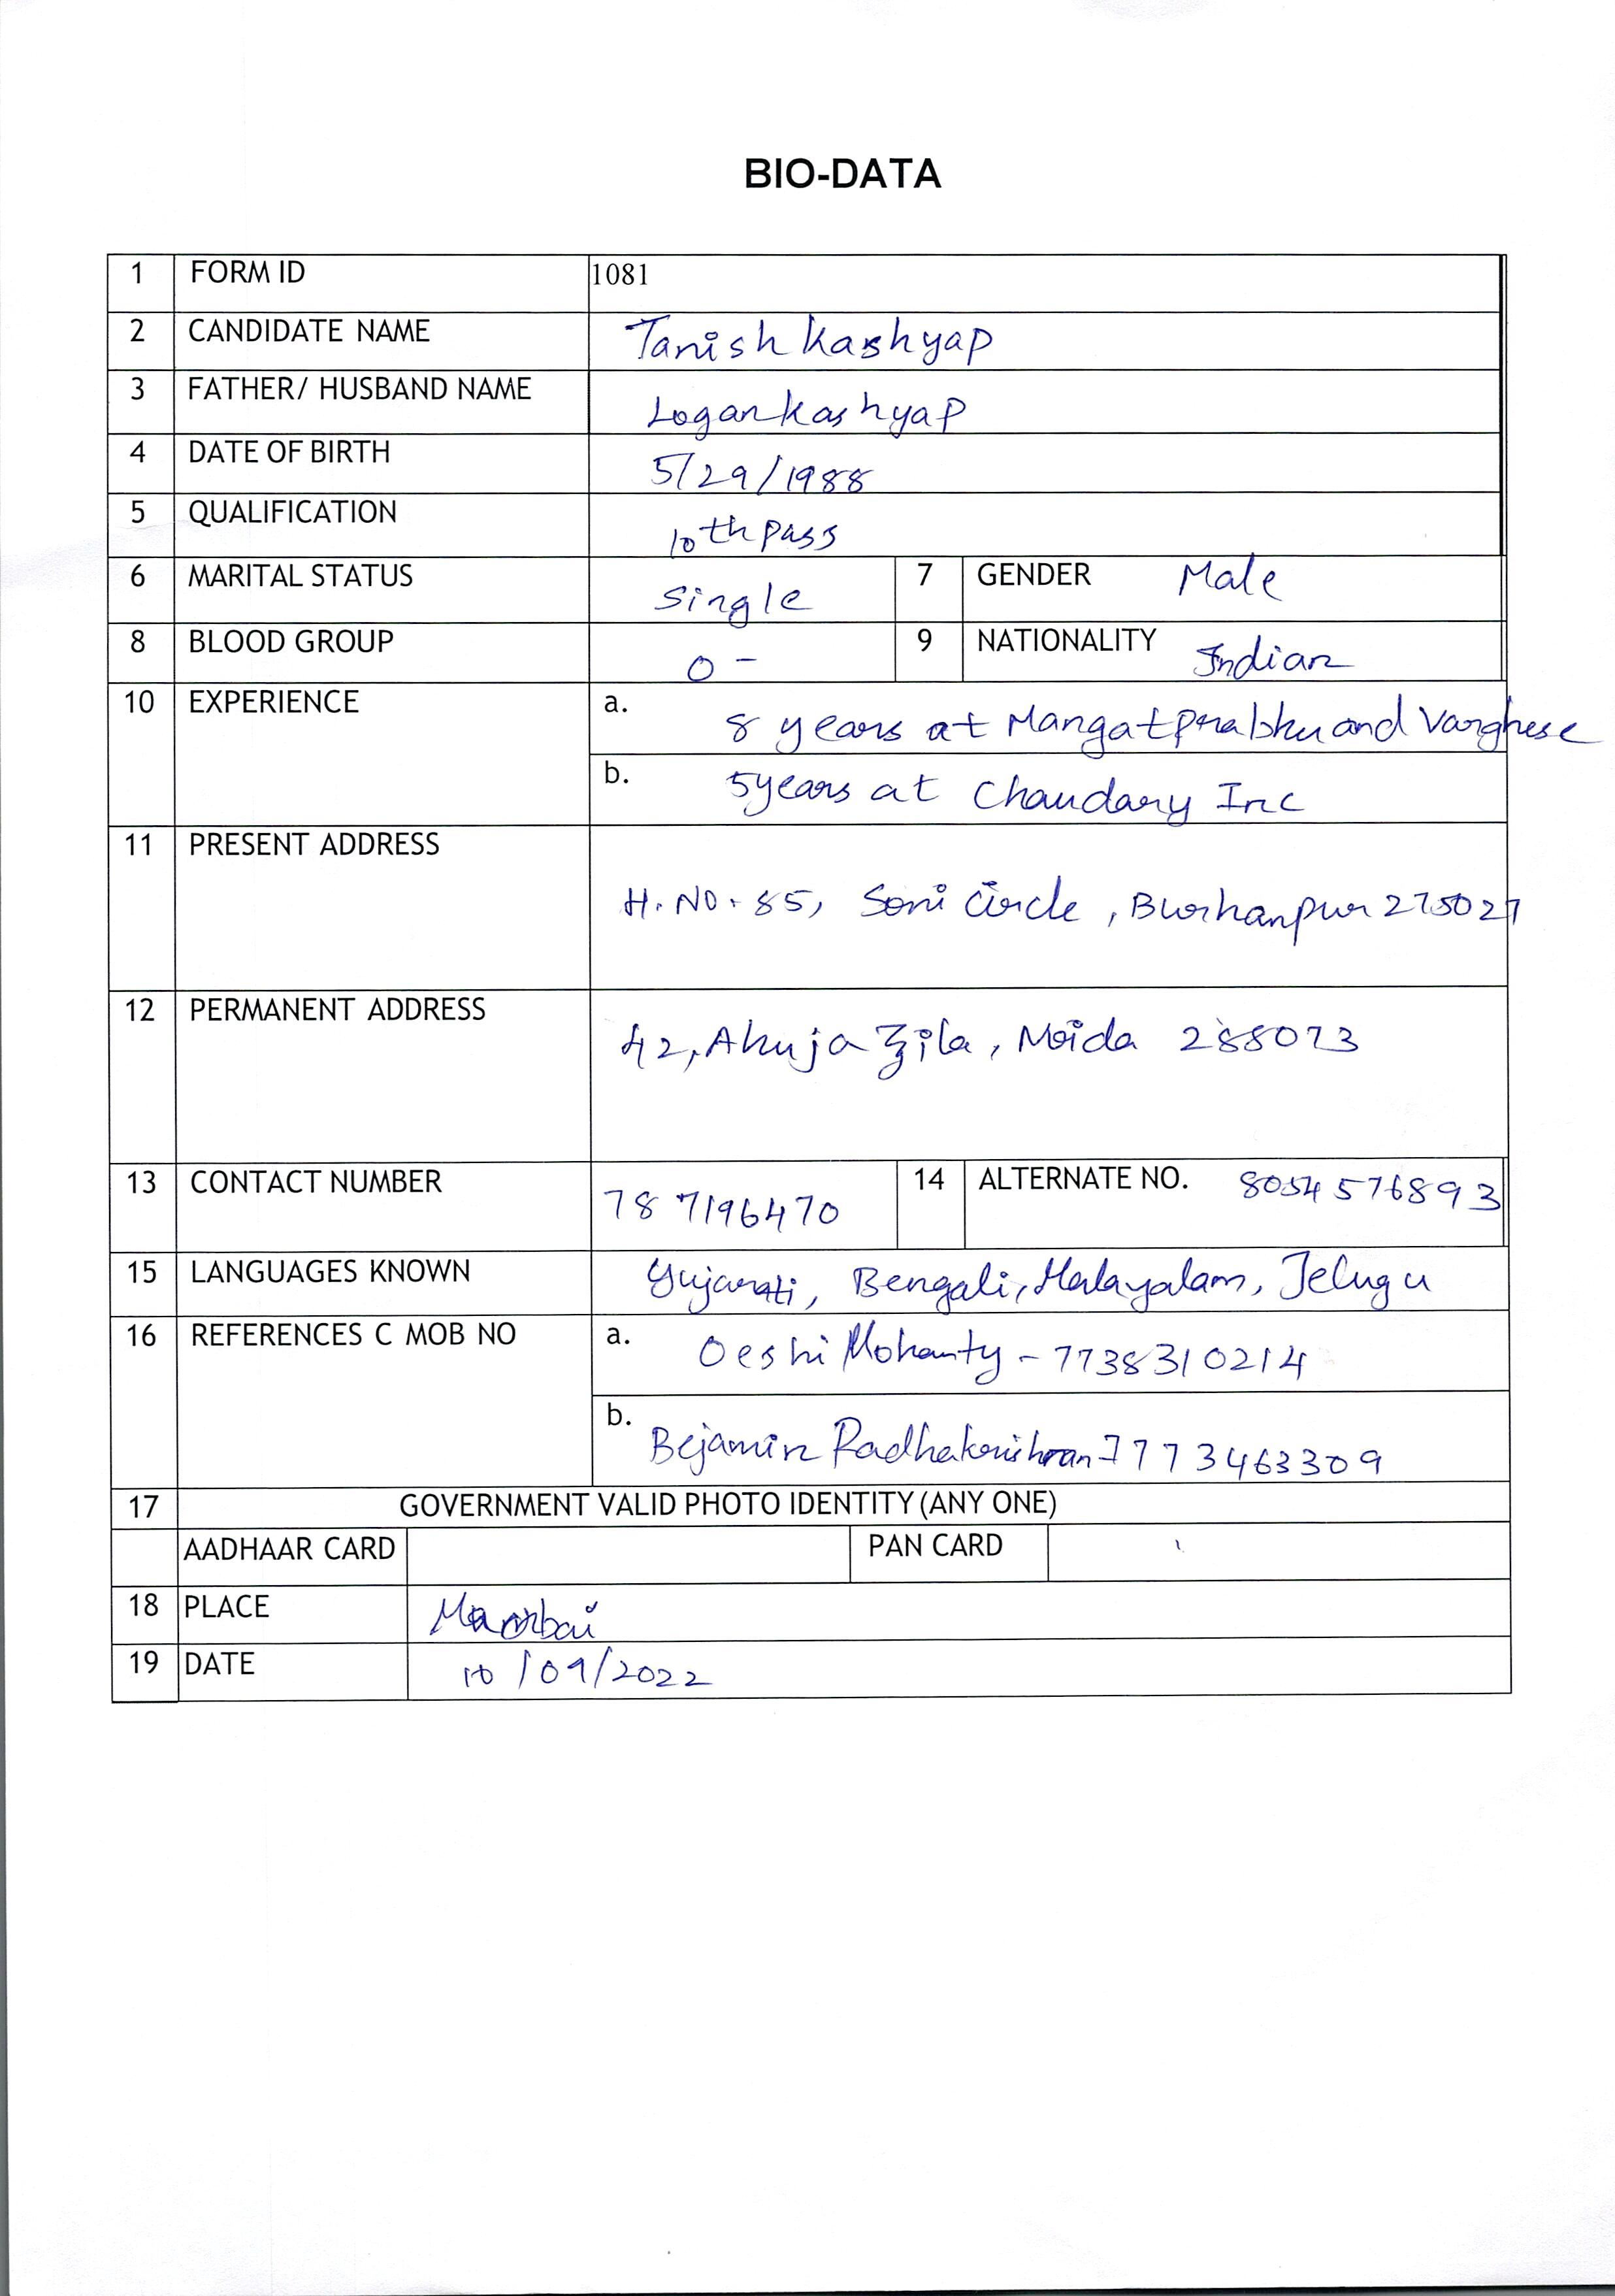 BIO-DATA
1 FORM ID 1081
2 CANDIDATE NAME Tanish Kashyap
3 FATHER/ HUSBAND NAME Logan Kashyap
4 DATE OF BIRTH 5/29/1988
5 QUALIFICATION 10th pass
6 MARITAL STATUS Single 7 GENDER Male
8 BLOOD GROUP O - 9 NATIONALITY Indian
10 EXPERIENCE a. 8 years at Mangat Prabhu and Varghese
b. 5 years at Chaudary Inc
11 PRESENT ADDRESS H. NO. 85, Soni Circle, Burhanpur 275027
12 PERMANENT ADDRESS 42, Ahuja Zila, Noida 288073
13 CONTACT NUMBER 787196470 14 ALTERNATE NO. 8054576893
15 LANGUAGES KNOWN Gujarati, Bengali, Malayalam, Telugu
16 REFERENCES C MOB NO a. Oeshi Mohanty - 7738310214
b. Bejamin Radhakrishnan 7773463309
17 GOVERNMENT VALID PHOTO IDENTITY (ANY ONE)
AADHAAR CARD PAN CARD
18 PLACE Mumbai
19 DATE 10/09/2022